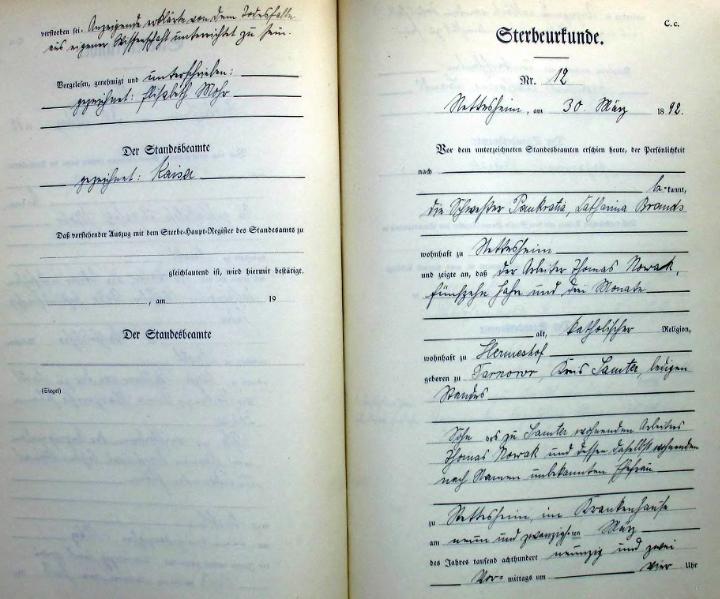 verstorben sei. Anzeigende erklärte von dem Todesfalle
aus eigener Wissenschaft unterrichtet zu sein.
Vorgelesen, genehmigt und unterschrieben:
gezeichnet: Elisabeth Mohr
Der Standesbeamte
gezeichnet: Kaiser
Daß vorstehender Auszug mit dem Sterbe-Haupt-Register des Standesamts zu
gleichlautend ist, wird hiermit bestätigt.
, am 19
Der Standesbeamte
(Siegel)
C. c.
Sterbeurkunde.
Nr. 12
Nettesheim, am 30. März 1892.
Vor dem unterzeichneten Standesbeamten erschien heute, der Persönlichkeit
nach
be-kannt,
die Schwester Pankratia, Catharina Brands
wohnhaft zu Nettesheim
und zeigte an, daß der Arbeiter Thomas Nowak,
fünfzehn Jahre und drei Monate
alt, katholischer Religion,
wohnhaft zu Hermeshof
geboren zu Tarnowo, Kreis Samter, ledigen
Standes
Sohn des zu Samter wohnenden Arbeiters
Thomas Nowak und dessen daselbst wohnenden
nach Namen unbekannten Ehefrau
zu Nettesheim, im Krankenhause
am neun und zwanzigsten März
des Jahres tausend achthundert neunzig und zwei
Vor-mittags um vier Uhr